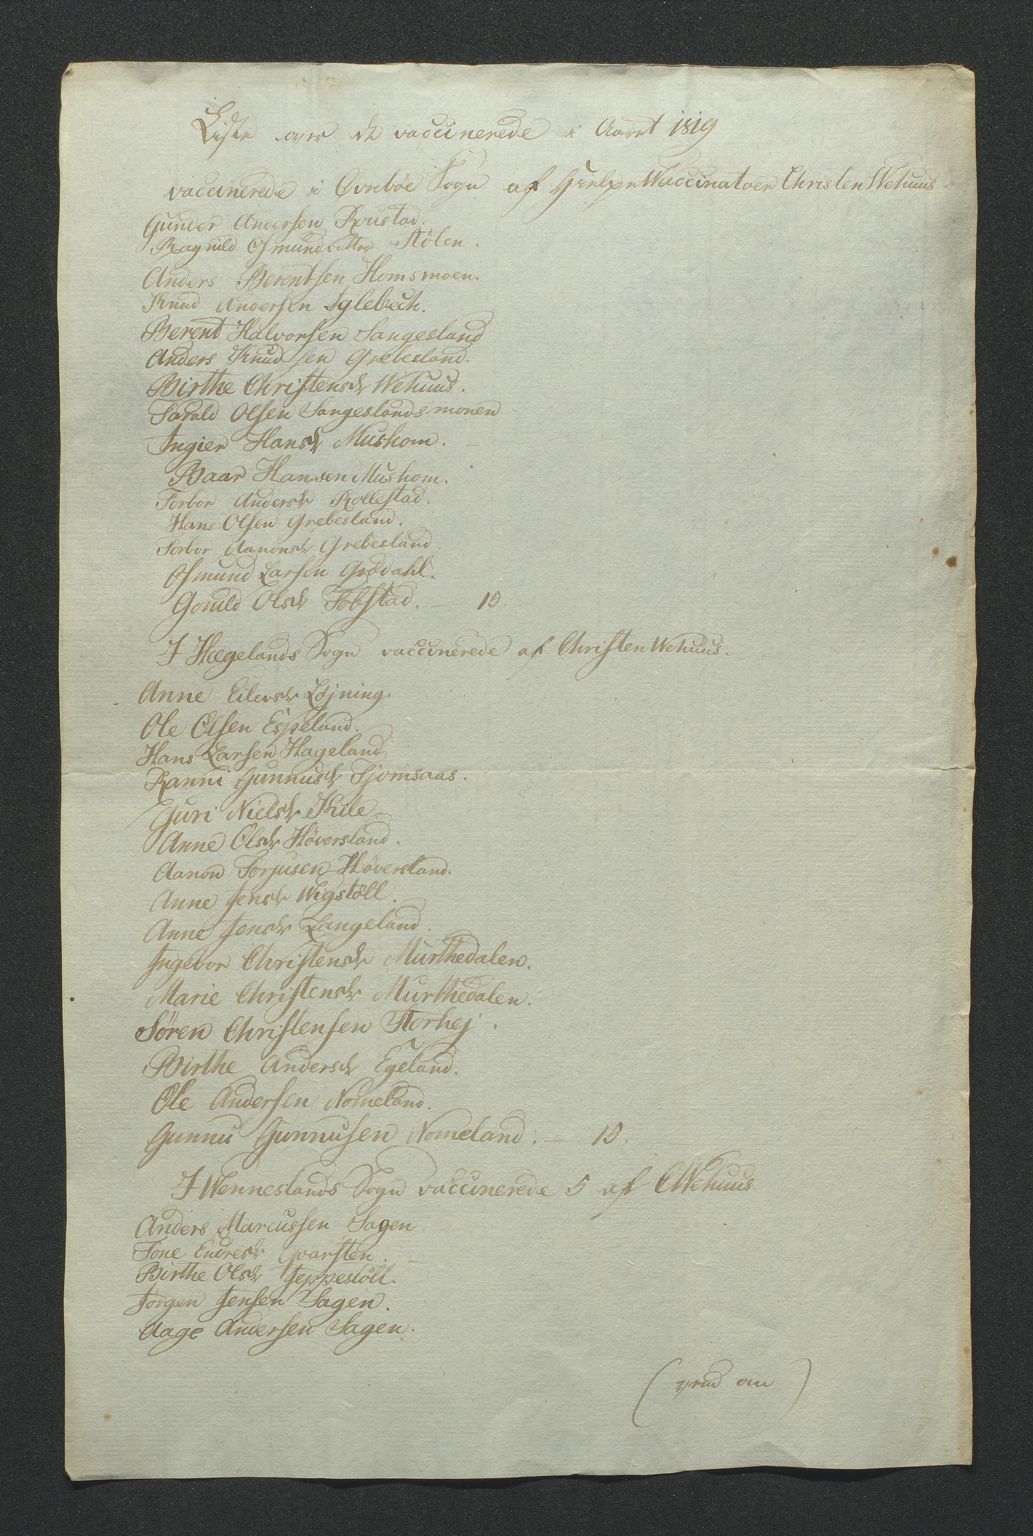 Liste over de vaccinerede i Aaret 1819
vaccinerede i Øvrebøe Sogn af Hielpe Waccinatoer Christen Wehuus.
Gunder Andersen Roustad.
Ragnild Osmundsdatter Stølen.
Anders Berentsen Homsmoen.
Knud Andersen Iglebæch.
Berent Halvorsen Sangesland
Anders Knudsen Grebesland.
Birthe Christensdr Wehuus.
Tarald Olsen Sangeslandsmonen
Ingier Hansdr Mushom.
Baar Hansen Mushom.
Torbor Andersdr Rollestad.
Hans Olsen Grebesland.
Torbor Aanonsdr Grebesland.
Osmund Larsen Grovahl.
Gonild Olsdr Tobstad. — 15.
I Hægelands Sogn vaccinerede af Christen Wehuus.
Anne Eilersdr Løjning.
Ole Olsen Espeland.
Hans Larsen Hageland
Ranni Gunnusdr Fjomsaas.
Guri Nielsdr Kile
Anne Olsdr Høversland.
Aanon Torjusen Høversland.
Anne Jensdr Wigstøll.
Anne Jensdr Langeland.
Ingebor Christensdr Murthedalen.
Marie Christensdr Murthedalen.
Søren Christensen Storhej.
Birthe Andersdr Egeland.
Ole Andersen Nomeland.
Gunnu Gunnusen Nomeland. — 15.
I Wenneslands Sogn vaccinerede 5 af C Wehuus
Anders Marcussen Sagen
Tone Endresdr Qvarsten.
Birthe Olsdr Jeppestøll.
Jørgen Jensen Sagen.
Aage Andersen Sagen.
(vend om)